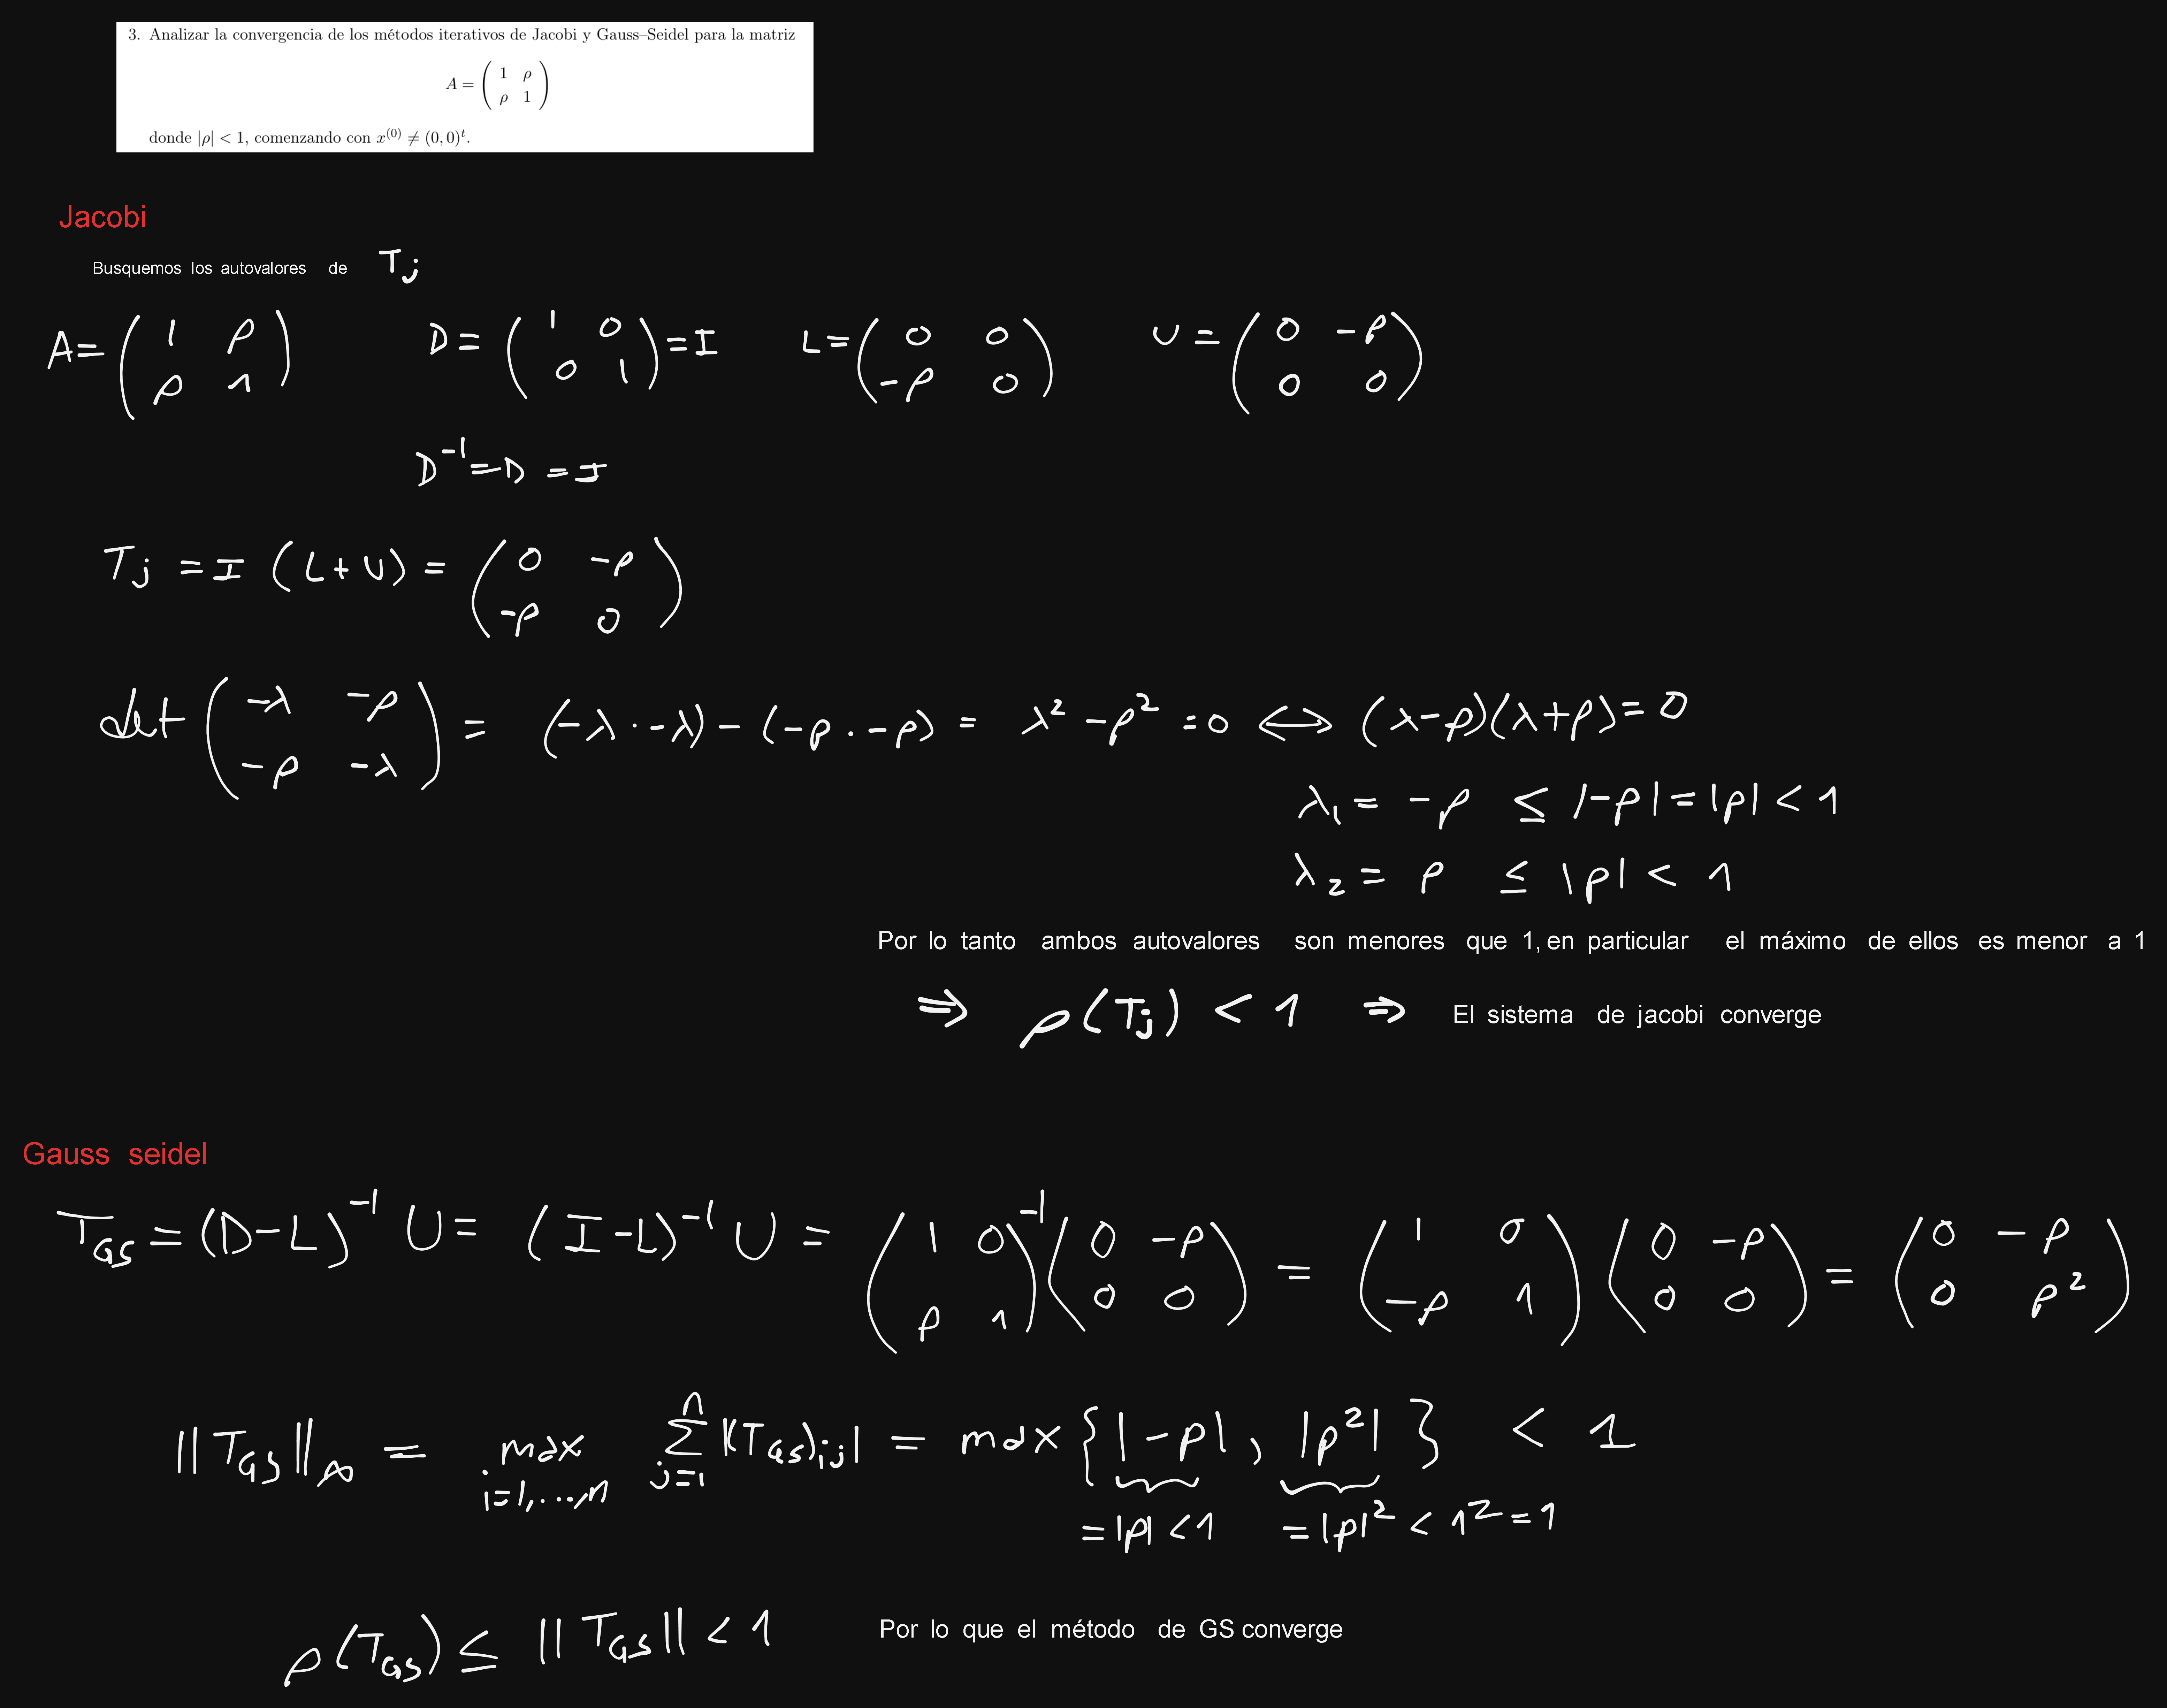 3. Analizar la convergencia de los métodos iterativos de Jacobi y Gauss–Seidel para la matriz
A = ( 1 ρ
ρ 1 )
donde |ρ| < 1, comenzando con x^(0) ≠ (0, 0)^t.
Jacobi
Busquemos los autovalores de T_j
A = ( 1 ρ ; ρ 1 ) D = ( 1 0 ; 0 1 ) = I L = ( 0 0 ; -ρ 0 ) U = ( 0 -ρ ; 0 0 )
D^-1 = D = I
T_j = I (L + U) = ( 0 -ρ ; -ρ 0 )
det ( -λ -ρ ; -ρ -λ ) = (-λ · -λ) - (-ρ · -ρ) = λ² - ρ² = 0 ⟺ (λ-ρ)(λ+ρ) = 0
λ_1 = -ρ ≤ |-ρ| = |ρ| < 1
λ_2 = ρ ≤ |ρ| < 1
Por lo tanto ambos autovalores son menores que 1, en particular el máximo de ellos es menor a 1
⇒ ρ(T_j) < 1 ⇒ El sistema de jacobi converge
Gauss seidel
T_GS = (D-L)^-1 U = (I-L)^-1 U = ( 1 0 ; ρ 1 )^-1 ( 0 -ρ ; 0 0 ) = ( 1 0 ; -ρ 1 ) ( 0 -ρ ; 0 0 ) = ( 0 -ρ ; 0 ρ² )
||T_GS||_∞ = max_{i=1,...,n} Σ_{j=1}^{n} |(T_GS)_ij| = max { |-ρ| , |ρ²| } < 1
= |ρ| < 1 = |ρ|² < 1² = 1
ρ(T_GS) ≤ ||T_GS|| < 1 Por lo que el método de GS converge